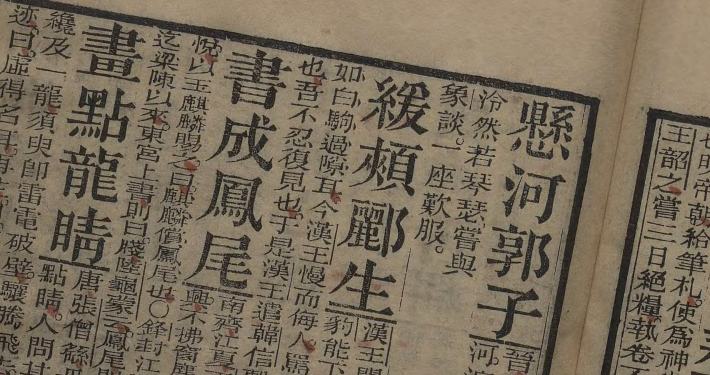 明帝朝給筆札使為神
王韶之嘗三日絕糧執卷
懸河郭子
晉
河
泠然若琴瑟嘗與
象談。一座歎服。
緩頰酈生
漢王
豹能下
如白駒過隙耳今漢王慢而侮人罵
也吾不忍復見也于是漢王遣韓信
書成鳳尾
南齊江夏
興不拂窗塵
悅以玉麒麟賜之曰麒麟償鳳尾也○鋒封江
迄梁陳以來東宮上書則曰牋陸龜蒙云鳳尾
畫點龍睛
唐張僧繇
點睛。人問其
及一龍須臾卽雷電破壁驤騰飛
迹曰。虛得名耳